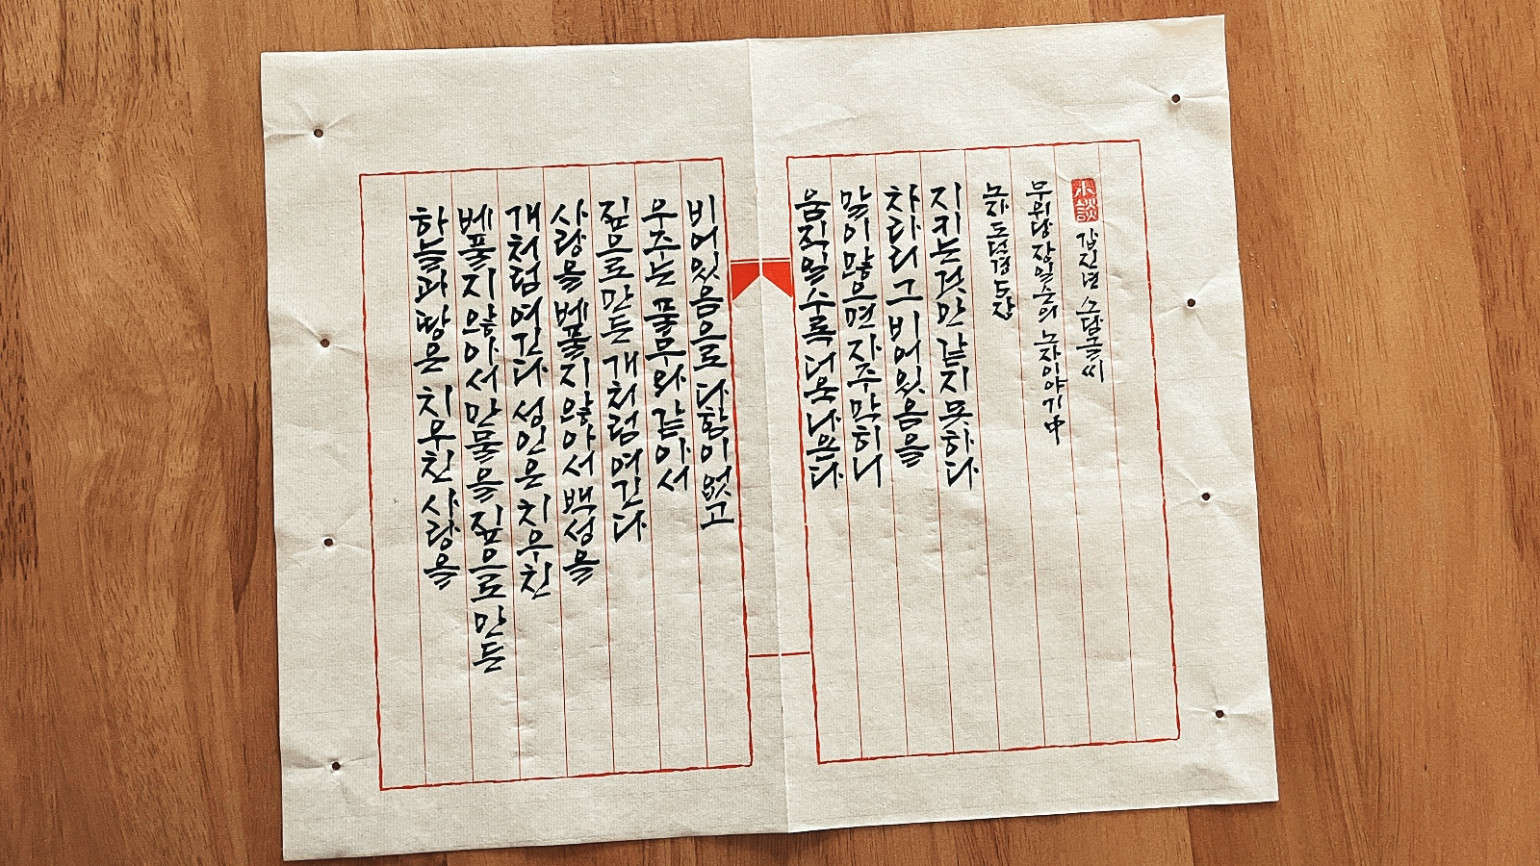 하늘과 땅은 치우친 사랑을
베풀지 않아서 만물을 짚으로 만든
개처럼 여긴다 성인은 치우친
사랑을 베풀지 않아서 백성을
짚으로 만든 개처럼 여긴다
우주는 풀무와 같아서
비어있음으로 다함이 없고
움직일수록 더욱 나온다
말이 많으면 자주 막히니
차라리 그 비어있음을
지키는 것만 같지 못하다
노자 도덕경 5장
무위당 장일순의 노자이야기 中
갑진년 소담글씨
小談